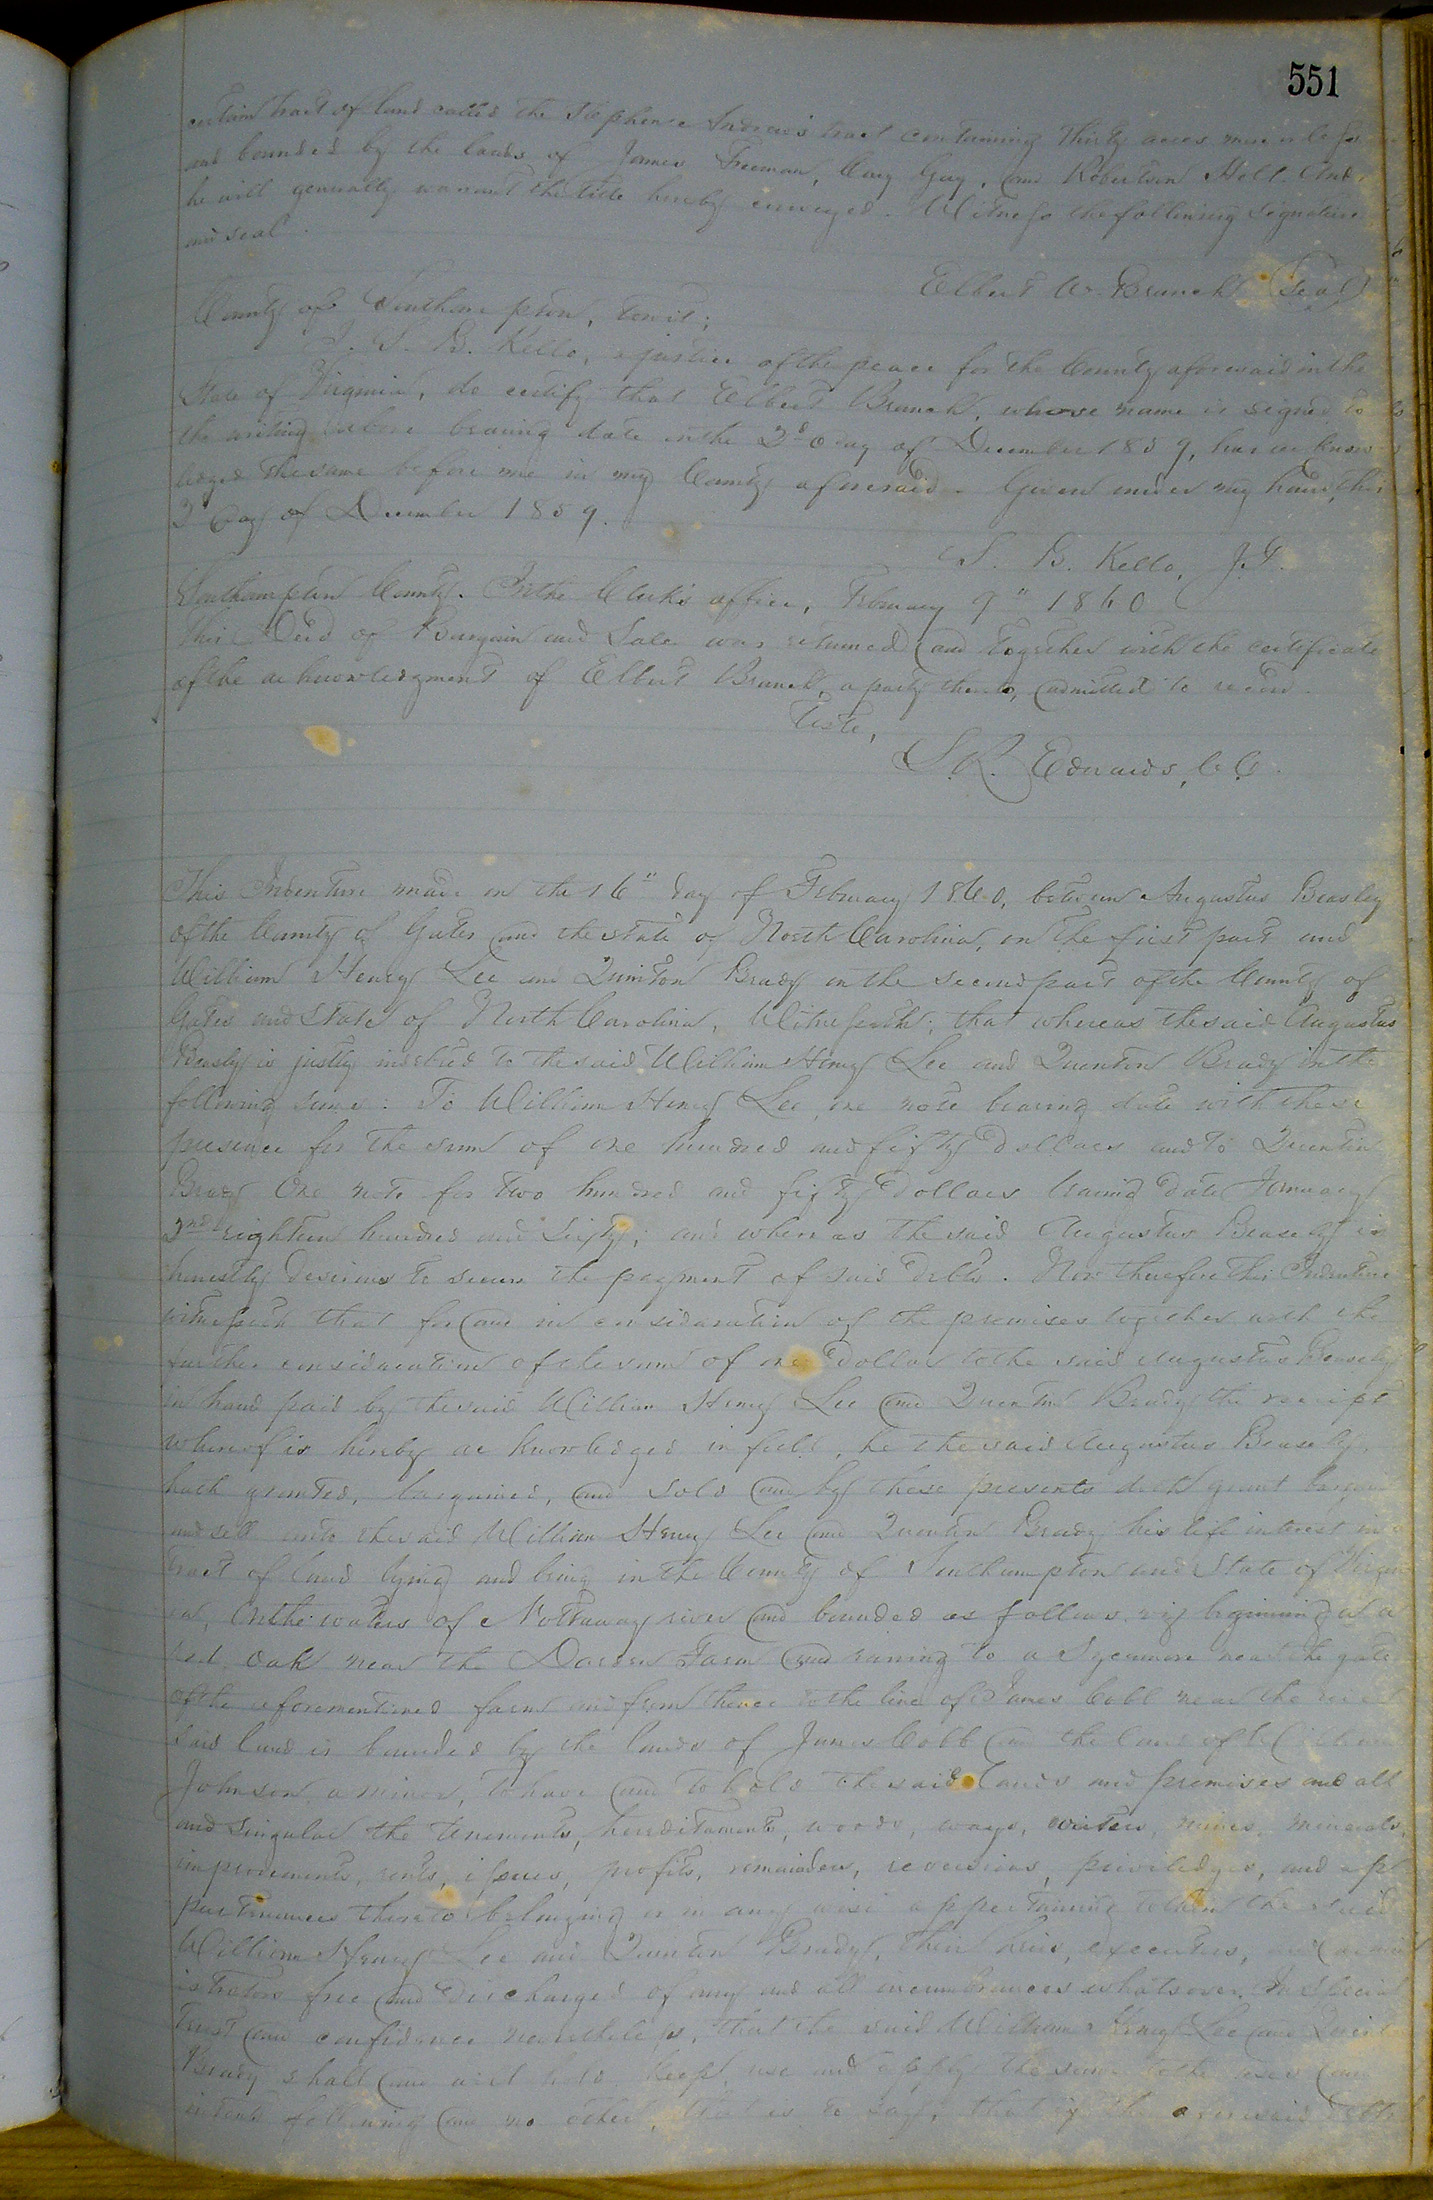 551
certain tract of land called the Stephen Andrews tract containing thirty acres more or less
and bounded by the lands of James Freeman, Guy, and Robertson Holt. And
he will generally warrant the title hereby conveyed. Witness the following signature
and seal.
Elbert W. Branch (Seal)
County of Southampton, towit;
I. S. B. Kello, a justice of the peace for the County aforesaid in the
State of Virginia, do certify that Elbert Branch, whose name is signed to
the writing above bearing date on the 3d day of December 1859, has acknow
ledged the same before me in my County aforesaid. Given under my hand, this
3d day of December 1859.
S. B. Kello, J.P.
Southampton County. In the Clerk's office, February 9" 1860
This Deed of Bargain and Sale was returned and together with the certificate
of the acknowledgment of Elbert Branch, a party thereto, admitted to record.
Teste,
L.R. Edwards, C.C.
This Indenture made on the 16" day of February 1860, between Augustus Beasley
of the County of Gates and the state of North Carolina, on the first part and
William Henry Lee and Quinton Brady on the second part of the County of
Gates and State of North Carolina, Witnesseth; that whereas the said Augustus
Beasly is justly indebted to the said William Henry Lee and Quenten Brady in the
following sums: To William Henry Lee, one note bearing date with these
presence for the sum of one hundred and fifty Dollars and to Quentin
Brady One note for two hundred and fifty Dollars bearing date January
2nd eighteen hundred and Sixty; and where as the said Augustus Beasely is
honestly desirous to secure the payment of said Debts. Now therefore this Indenture
witnesseth that for and in consideration of the premises together with the
further consideration of the sum of one Dollar to the said Augustus Beasely
in hand paid by the said William Henry Lee and Quentin Brady the receipt
whereof is hereby acknowledged in full, he the said Augustus Beasely,
hath granted, bargained, and sold and by these presents doth grant bargain
and sell unto the said William Henry Lee and Quentin Brady his life interest in a
tract of land lying and being in the County of Southampton and State of Virgin
ia, On the waters of Nottaway river and bounded as follows, viz beginning at a
red Oak near the Darden Farm and runing to a Sycamore near the gate
of the aforementioned farm and from thence to the line of James Cobb near the river
Said land is bounded by the lands of James Cobb and the land of William
Johnson a minor, To have and to hold the said lands and premises and all
and singular the tenements, hereditaments, woods, ways, waters, mines, minerals,
improvements, rents, issues, profits, remainders, reversions, priviledges, and ap
purtenances thereto belonging or in any wise appertaining to them the said
William Henry Lee and Quentin Brady, their heirs, executors, and admin
istrators free and discharged of any and all incumbrances whatsoever. In special
trust and confidence nevertheless, that the said William Henry Lee and Quentin
Brady shall and will hold keep, use and apply the same to the uses and
intents following and no other, that is to say, that if the aforesaid debts